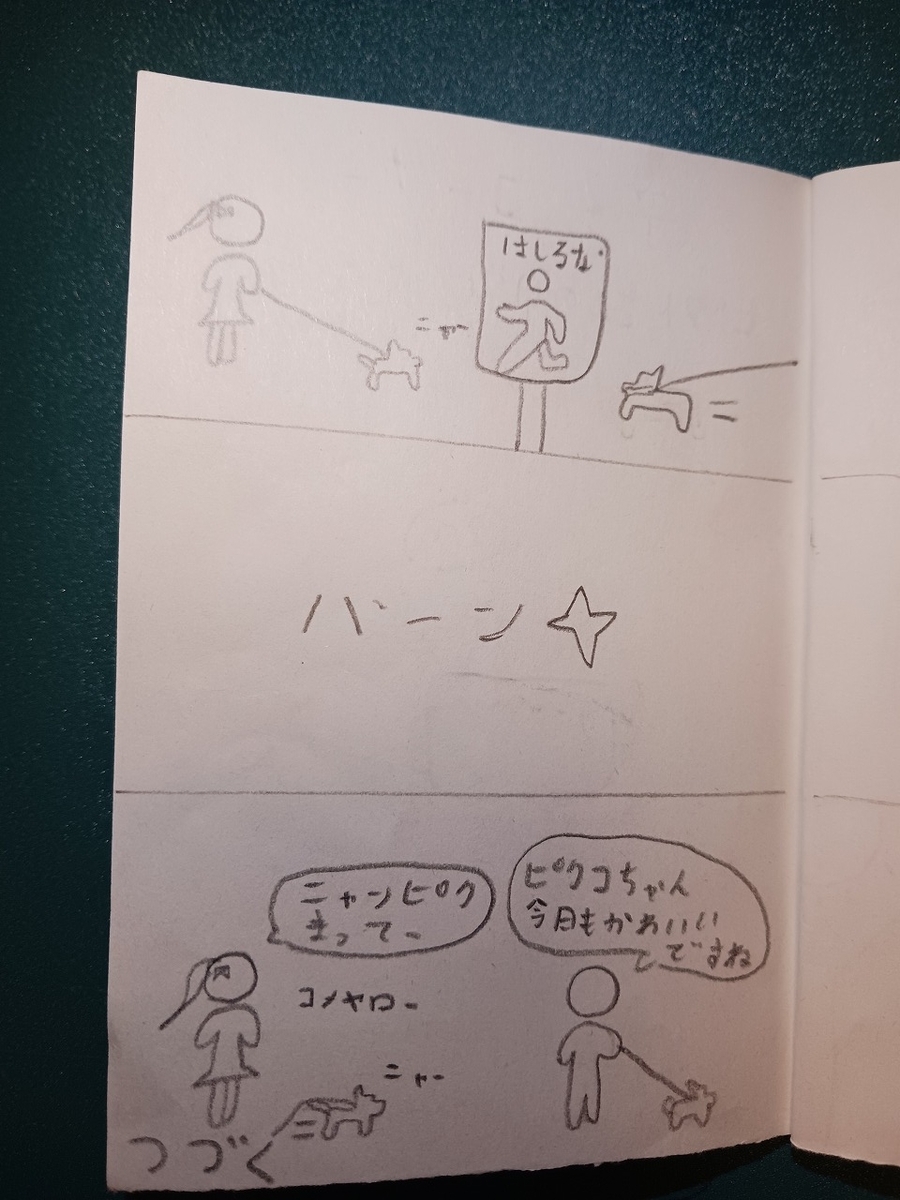 はしるな
ニャー
バーン
ニャンピク
まってー
ピクコちゃん
今日もかわいい
ですね
コメヤロー
ニャー
つづく